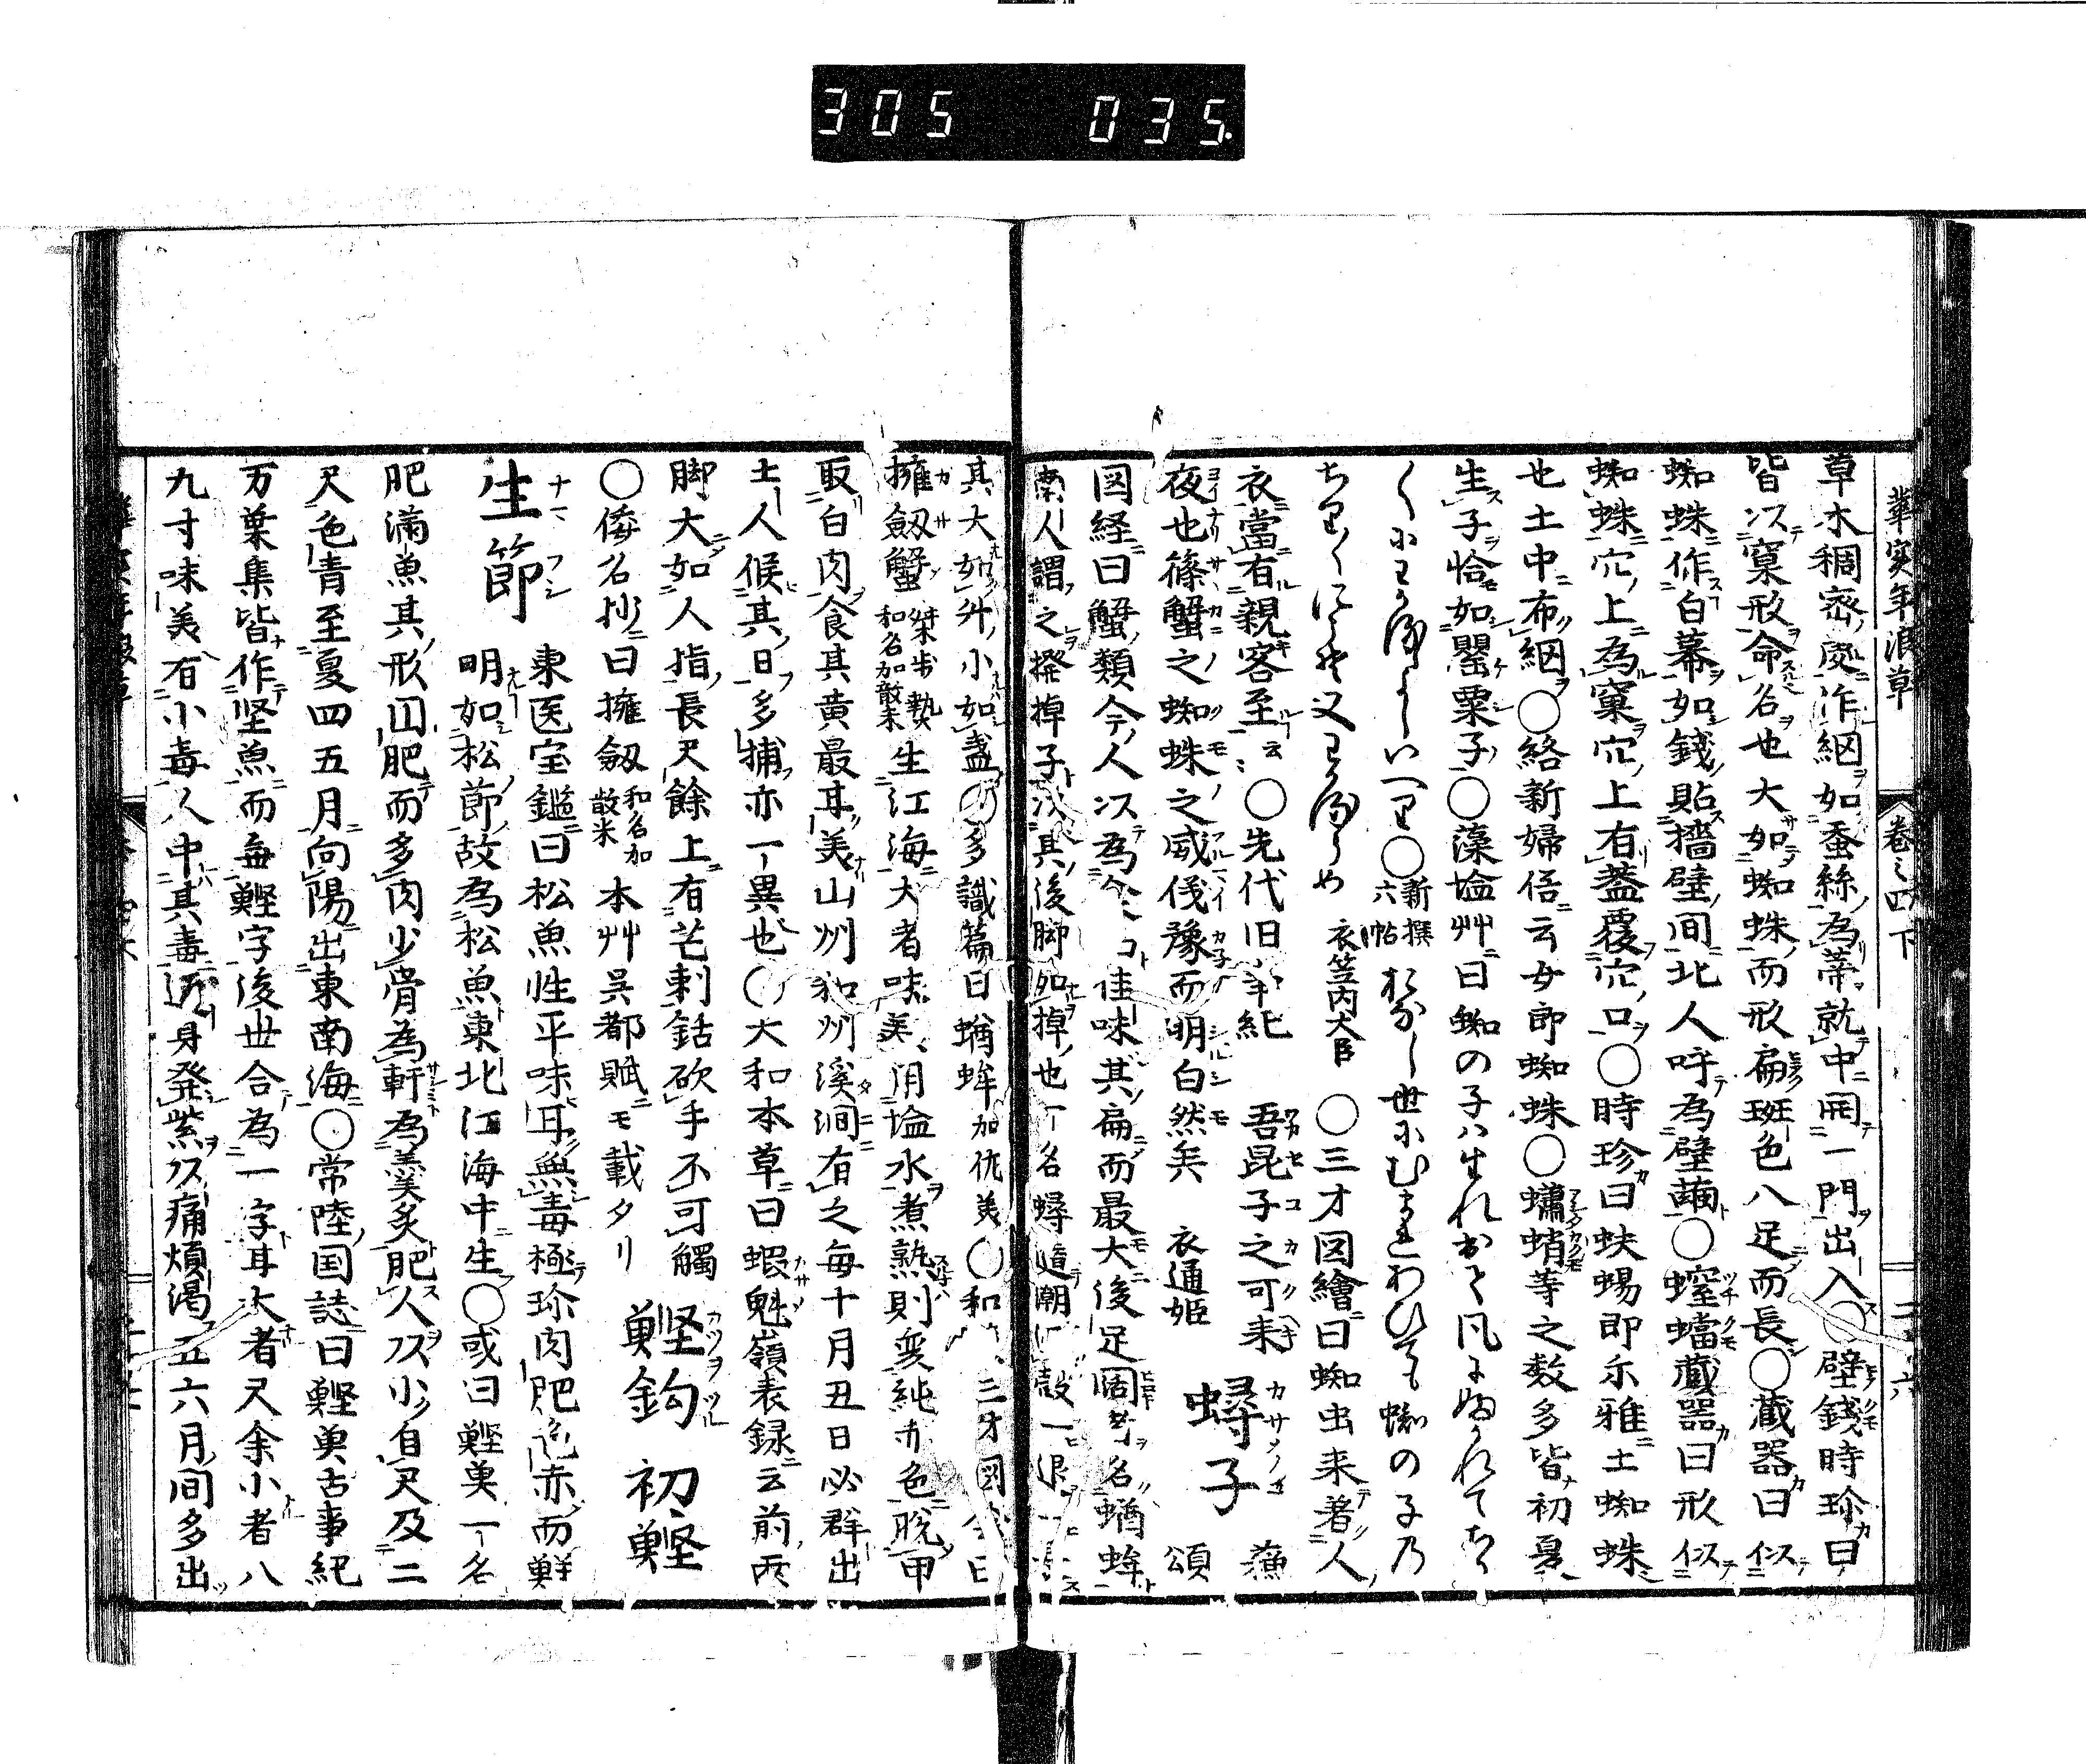 305 035
華実年浪草 巻之四下
草木稠密処作網如蚕絲為幕就中開一門出入〇壁錢時珍曰
皆以窠形命名也大如蜘蛛而形扁斑色八足而長〇蔵器曰似
蜘蛛作白幕如錢貼墻壁間北人呼為壁繭〇螲蟷蔵器曰形似
蜘蛛穴上為窠穴上有蓋覆穴口〇時珍曰蛈蝪即尓雅土蜘蛛
也土中布網〇絡新婦俗云女郎蜘蛛〇蠨蛸等之数多皆初夏
生子恰如罌粟子〇藻塩艸曰蜘の子ハ生れおちて風にふかれてちり
〳〵にわかるゝといへり〇新撰六帖 おなしく世にむまれわひても蜘の子乃
ちり〳〵に又わかるらめ 衣笠内大臣 〇三才図繪曰蜘虫来著人
衣當有親客至云〇先代旧事紀 吾昆子之可来
夜也篠蟹之蜘蛛之威伐豫而明白然矣 衣通姫 蟳子 蘓頌
図経曰蟹類今人以為佳味其扁而最大後足闊者名蝤蛑
南人謂之撥棹子以其後脚如棹也一名蟳随潮退殻一退一長
其大如升小如盞〇多識篇曰蝤蛑加佐美〇和三才図会曰
擁劔蟹桀歩執 和名加散米生江海大者味美用塩水煮熟則変純赤色脱甲
取白肉食其黄最耳美山州和州溪澗有之毎十月丑日必群出
土人候其日多捕亦一異也〇大和本草曰蝦魁嶺表録云前両
脚大如人指長尺餘上有芒刺銛砍手不可觸
〇倭名抄曰擁劔和名加散米本艸呉都賦モ載タリ 鰹鈎 初鰹
生節 東医宝鑑曰松魚性平味耳無毒極珎肉肥色赤而鮮
明如松節故為松魚東北江海中生〇或曰鰹魚一名
肥滿魚其形円肥而多肉少骨為軒為羹炙肥人以小自尺及二
尺色青至夏四五月向陽出東南海〇常陸国誌曰鰹魚古事紀
万葉集皆作堅魚而無鰹字後世合為一字耳大者尺余小者八
九寸味美有小毒人中其毒遍身発紫以痛煩渇五六月間多出